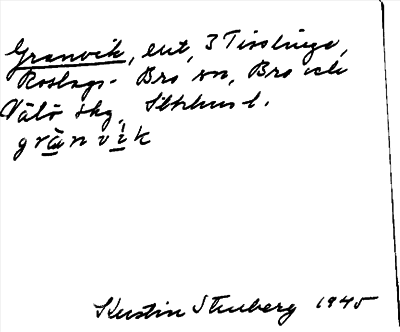 Granvik, ent, 3 Tisslinge,
Roslags-Bro sn, Bro och
Vätö skg, Sthlms l.
grànvìk
Kerstin Stenberg 1945